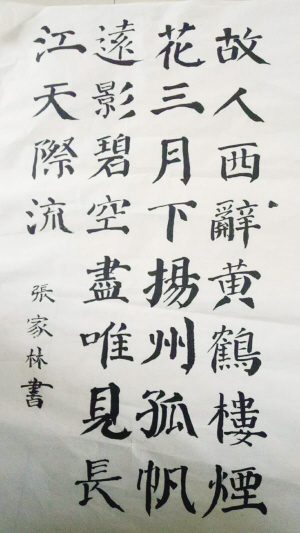 故人西辭黄鶴樓煙
花三月下揚州孤帆
遠影碧空盡唯見長
江天際流
張家林書